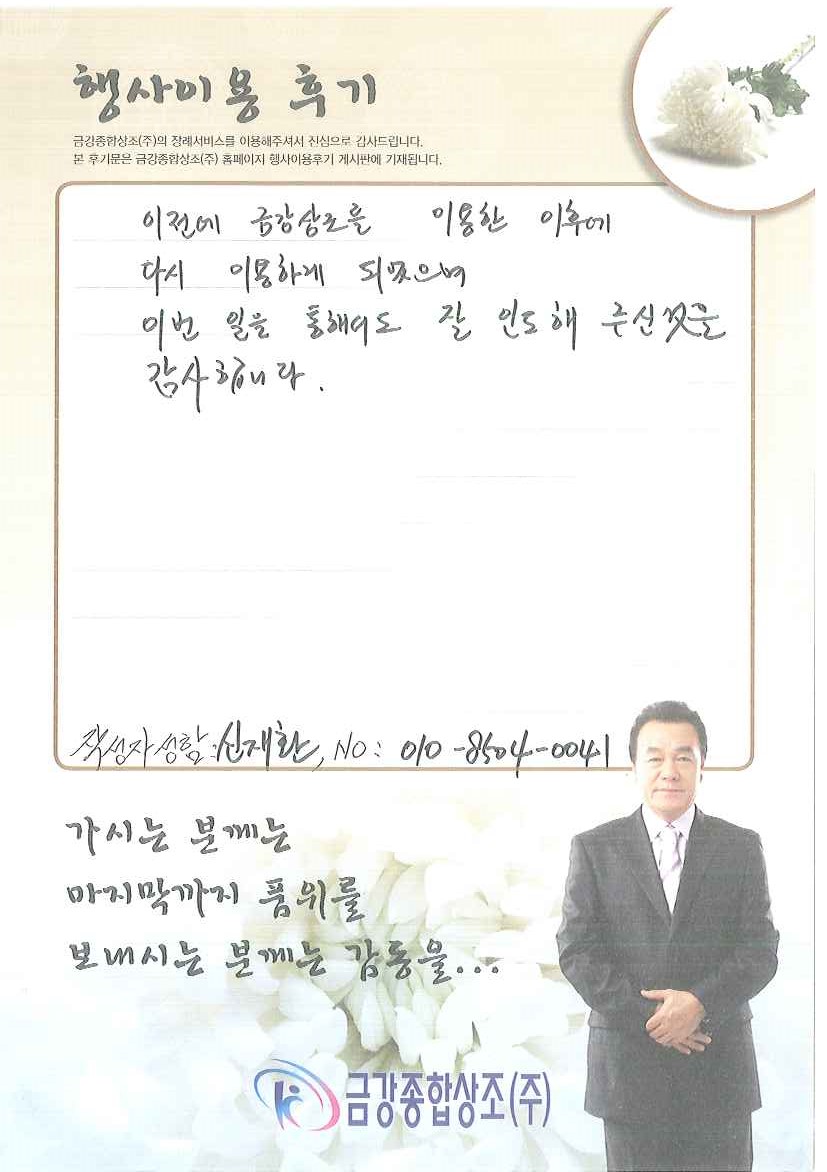 행사이용 후기
금강종합상조(주)의 장례서비스를 이용해주셔서 진심으로 감사드립니다.
본 후기문은 금강종합상조(주) 홈페이지 행사이용후기 게시판에 기재됩니다.
이전에 금강상조를 이용한 이후에
다시 이용하게 되었으며
이번 일을 통해서도 잘 인도해 주신것을
감사합니다.
작성자성함: 신재환, NO: 010-8504-0041
가시는 분께는
마지막까지 품위를
보내시는 분께는 감동을...
금강종합상조(주)